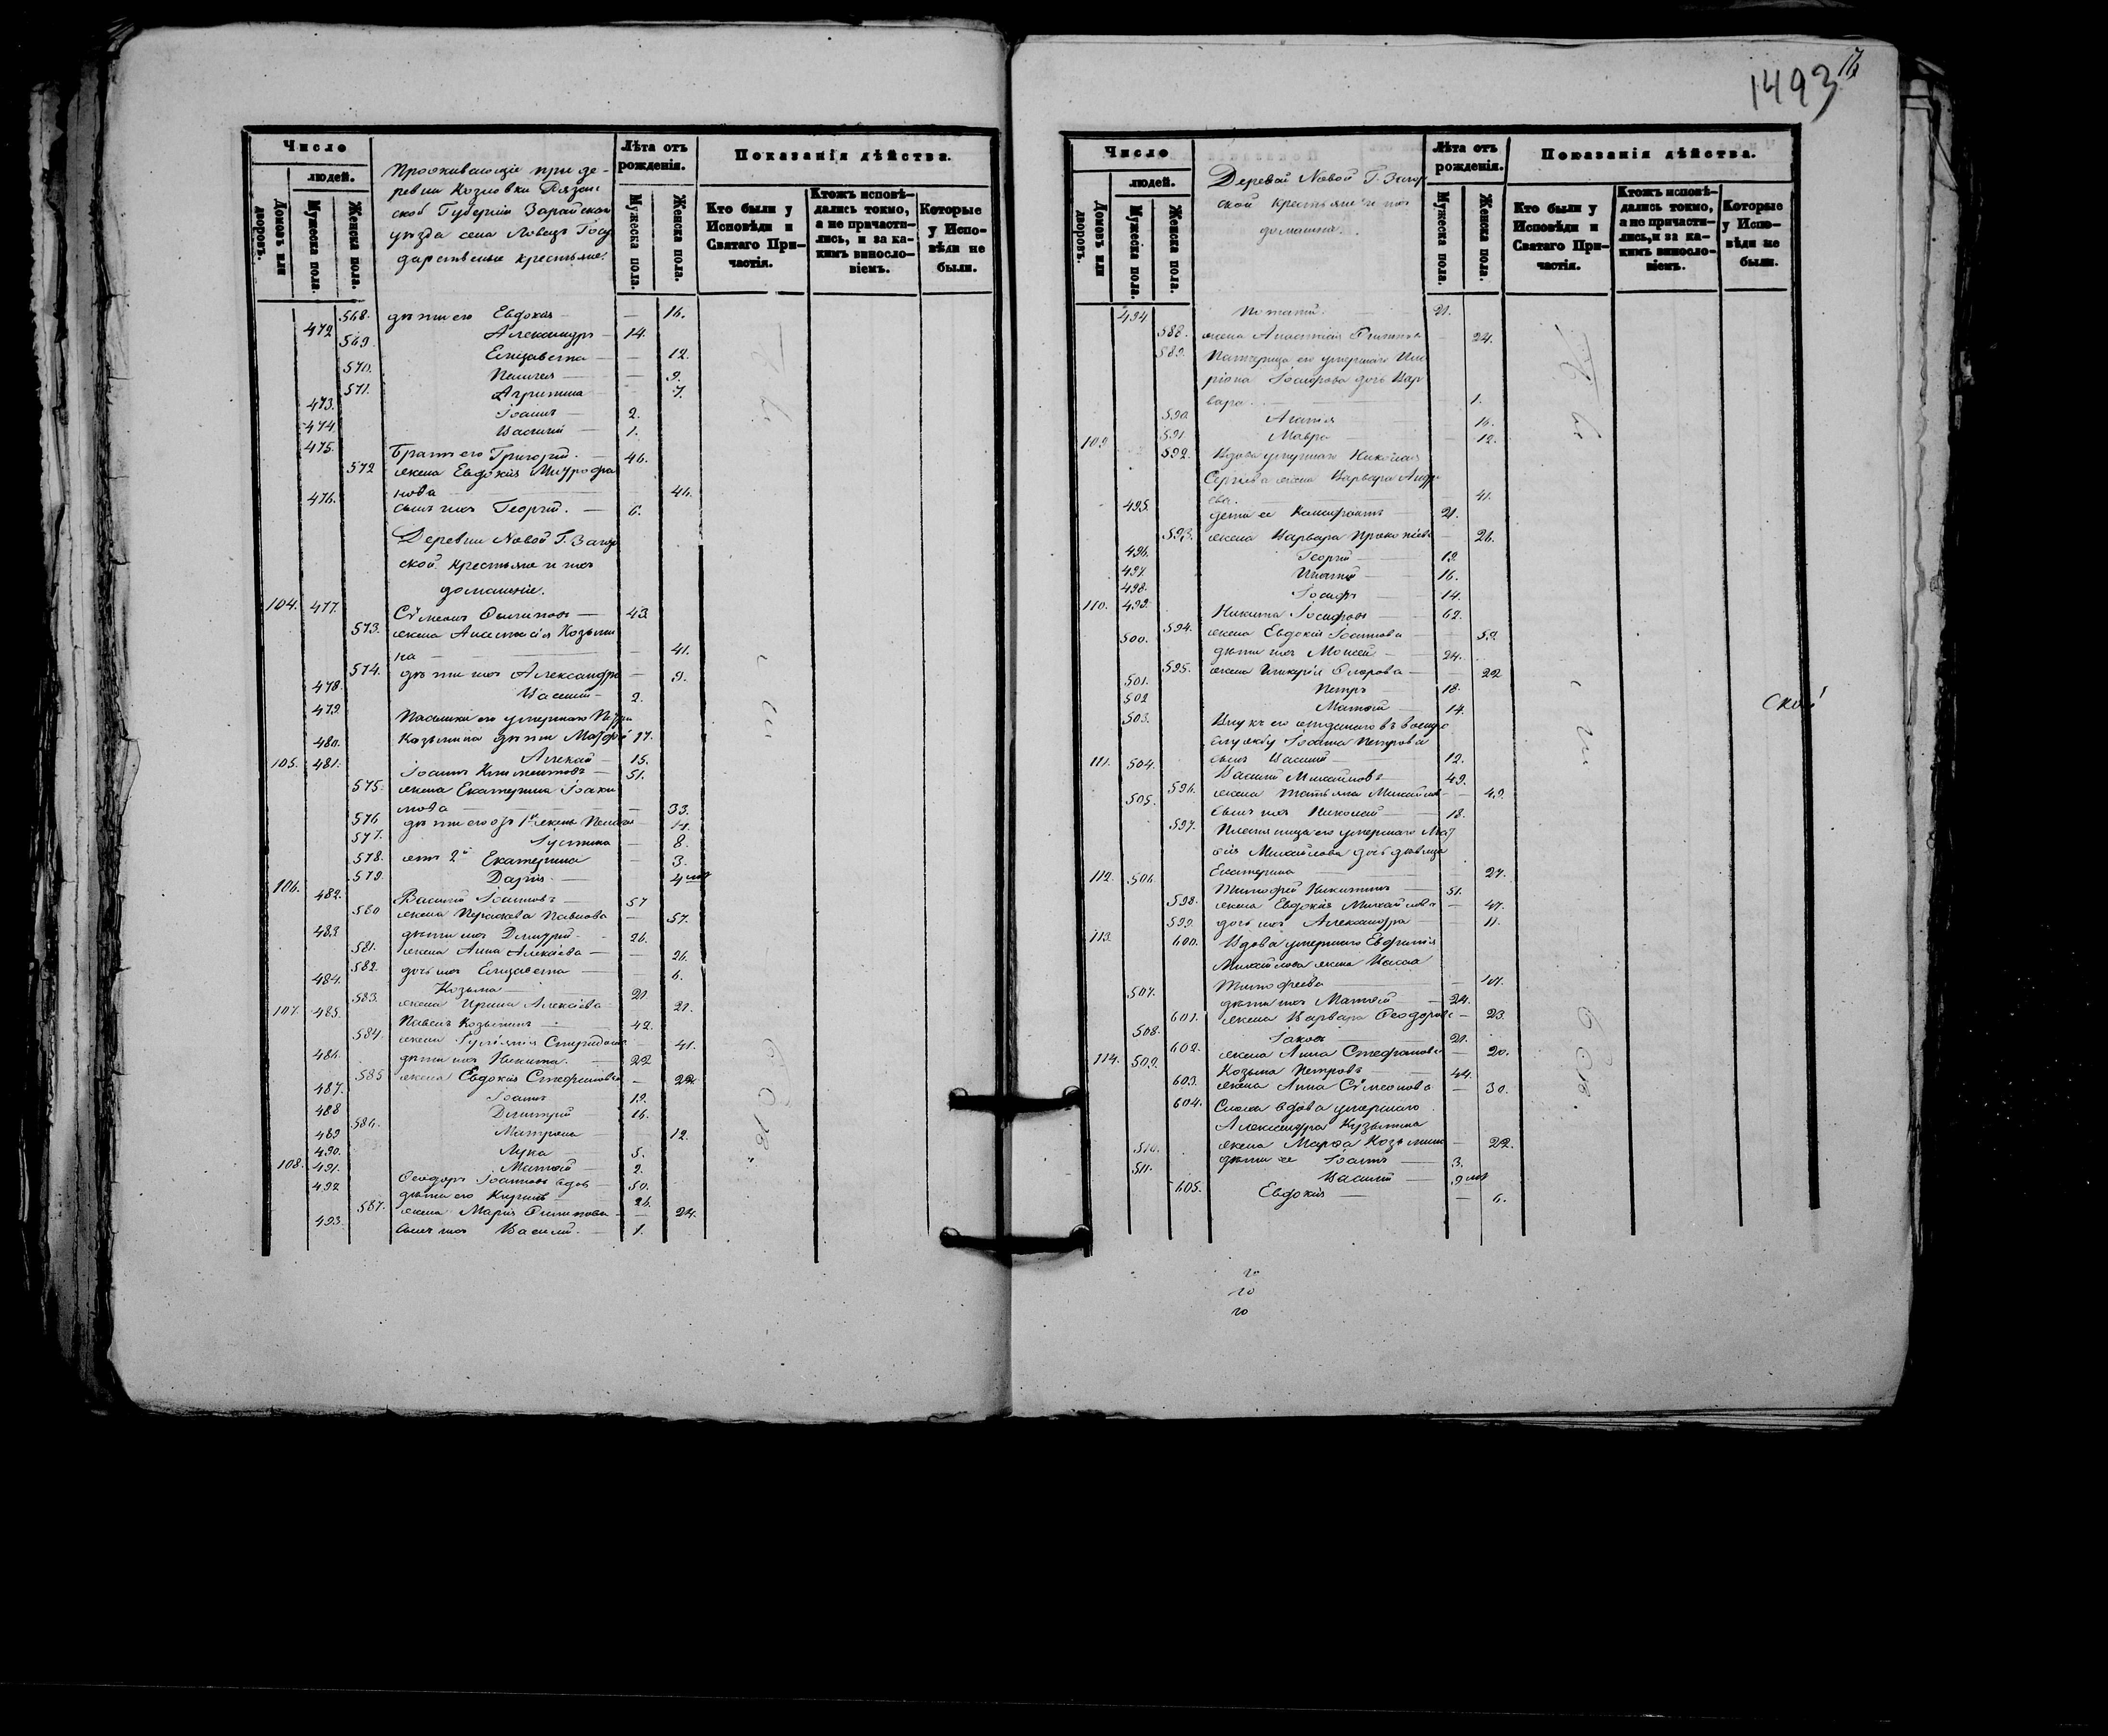 1493
17
Число
людей.
Домовъ или дворовъ.
Мужеска пола.
Женска пола.
Проживающіе при де-
ревни Козловки Рязан
ской Губерніи Зарайскаго
уѣзда села Ловецъ Госу
дарственные крестьяне.
Лѣта отъ рожденія.
Мужеска пола.
Женска пола.
Показанія дѣйства.
Кто были у Исповѣди и Святаго При-частія.
Ктожъ исповѣ-дались токмо, а не причасти-лись, и за ка-кимъ виносло-віемъ.
Которые у Испо-вѣди не были.
568. дѣти его Евдокія — 16.
472 Александръ — 14.
569. Елизавета — 12.
570. Пелагея — 9.
571. Агрипина — 7.
473. Іоаннъ — 2.
474. Василій — 1.
475. Братъ его Григорій. — 46.
572 жена Евдокія Митрофа
нова — 46.
476. сынъ ихъ Георгій. — 6.
Деревни Новой Г. Загря
ской крестьяне и ихъ
домашніе.
104. 477. Сѵмеонъ Филиповъ — 43.
573. жена Анастасія Козьми
на — 41.
574. дѣти ихъ Александра — 9.
478. Василій — 2.
479 Пасынки его умершаго Петра
Козьмина дѣти Матфей 17.
480. Алексѣй — 15.
105. 481. Іоаннъ Климентовъ — 51.
575. жена Екатерина Іоаки
мова — 33.
576 дѣти его отъ 1й жены Пелагея — 14.
577. Іустина — 8.
578. отъ 2й Екатерина — 3.
579. Дарія. — 4 мѣс
106. 482. Василій Іоанновъ — 57
580 жена Параскева Павлова — 57.
483 дѣти ихъ Димитрій — 26.
581. жена Анна Алексѣева — 26.
582. дочь ихъ Елизавета — 6.
484. Козьма — 20.
583. жена Ирина Алексѣева — 21.
107. 485. Павелъ Козьминъ — 42.
584. жена Іуліанія Спиридонова — 41.
486. дѣти ихъ Никита. — 22
585 жена Евдокія Стефановна — 22.
487. Іоаннъ 19.
488 Димитрій — 16.
586. Матрона — 12.
489 Лука — 5.
490. Матвей — 2.
108. 491. Ѳеодоръ Іоанновъ вдов — 50.
492 дѣти его Кирилъ — 26.
587. жена Марія Филипова — 24.
493. сынъ ихъ Василій. — 1.
Число
людей.
Домовъ или дворовъ.
Мужеска пола.
Женска пола.
Деревни Новой Г. Загря
ской крестьяне и ихъ
домашніе.
Лѣта отъ рожденія.
Мужеска пола.
Женска пола.
Показанія дѣйства.
Кто были у Исповѣди и Святаго При-частія.
Ктожъ исповѣ-дались токмо, а не причасти-лись, и за ка-кимъ винословіемъ.
Которые у Испо-вѣди не были.
494 Потапій. 21.
588. жена Анастасія Филипова — 24.
589. Падчерица его умершаго Ила
ріона Іосифова дочь Вар
вара. — 1.
590. Агафія 14.
591 Мавра — 12.
109 592. Вдова умершаго Николая
Сергѣева жена Варвара Андре
ева. — 41.
495. дети ее — 21.
593. жена Варвара Прокопіева — 26.
496. Георгій — 19.
497. Игнатій — 16.
498. Іосифъ — 14.
110. 499. Никита Іосифовъ — 62.
594. жена Евдокія Іоаннова — 59.
500. дѣти ихъ Моисей — 24.
595. жена Гликерія — 22
501. Петръ — 18.
502 Матвей — 14.
503. Внукъ его отданнаго въ военную
службу Іоанна Петрова
сынъ Василій — 12.
111. 504. Василій Михайловъ — 49.
596. жена Татьяна Михайлова — 49.
505. сынъ ихъ Николай — 18.
597. Племянница его умершаго Мат
ѳія Михайлова дочь дѣвица
Екатерина 27.
112. 506. Тимофей Никитинъ — 51.
598. жена Евдокія Михайлова — 47.
599 дочь ихъ Александра — 11.
113. 600. Вдова умершаго Евфимія
Михайлова жена
Тимофеева
507. дѣти ихъ Матвей — 24.
601. жена Варвара Ѳеодорова — 23.
508. Іаковъ — 20.
602. жена Анна Стефановна — 20.
114. 509. Козьма Петровъ — 44.
603. жена Анна Сѵмеонова — 30.
604. Сноха вдова умершаго
Александра Кузьмина
жена Марѳа Козьмина — 22.
510. дѣти ее Іоаннъ — 3.
511. Василій — 9 мѣс
605. Евдокія — 6.
ской